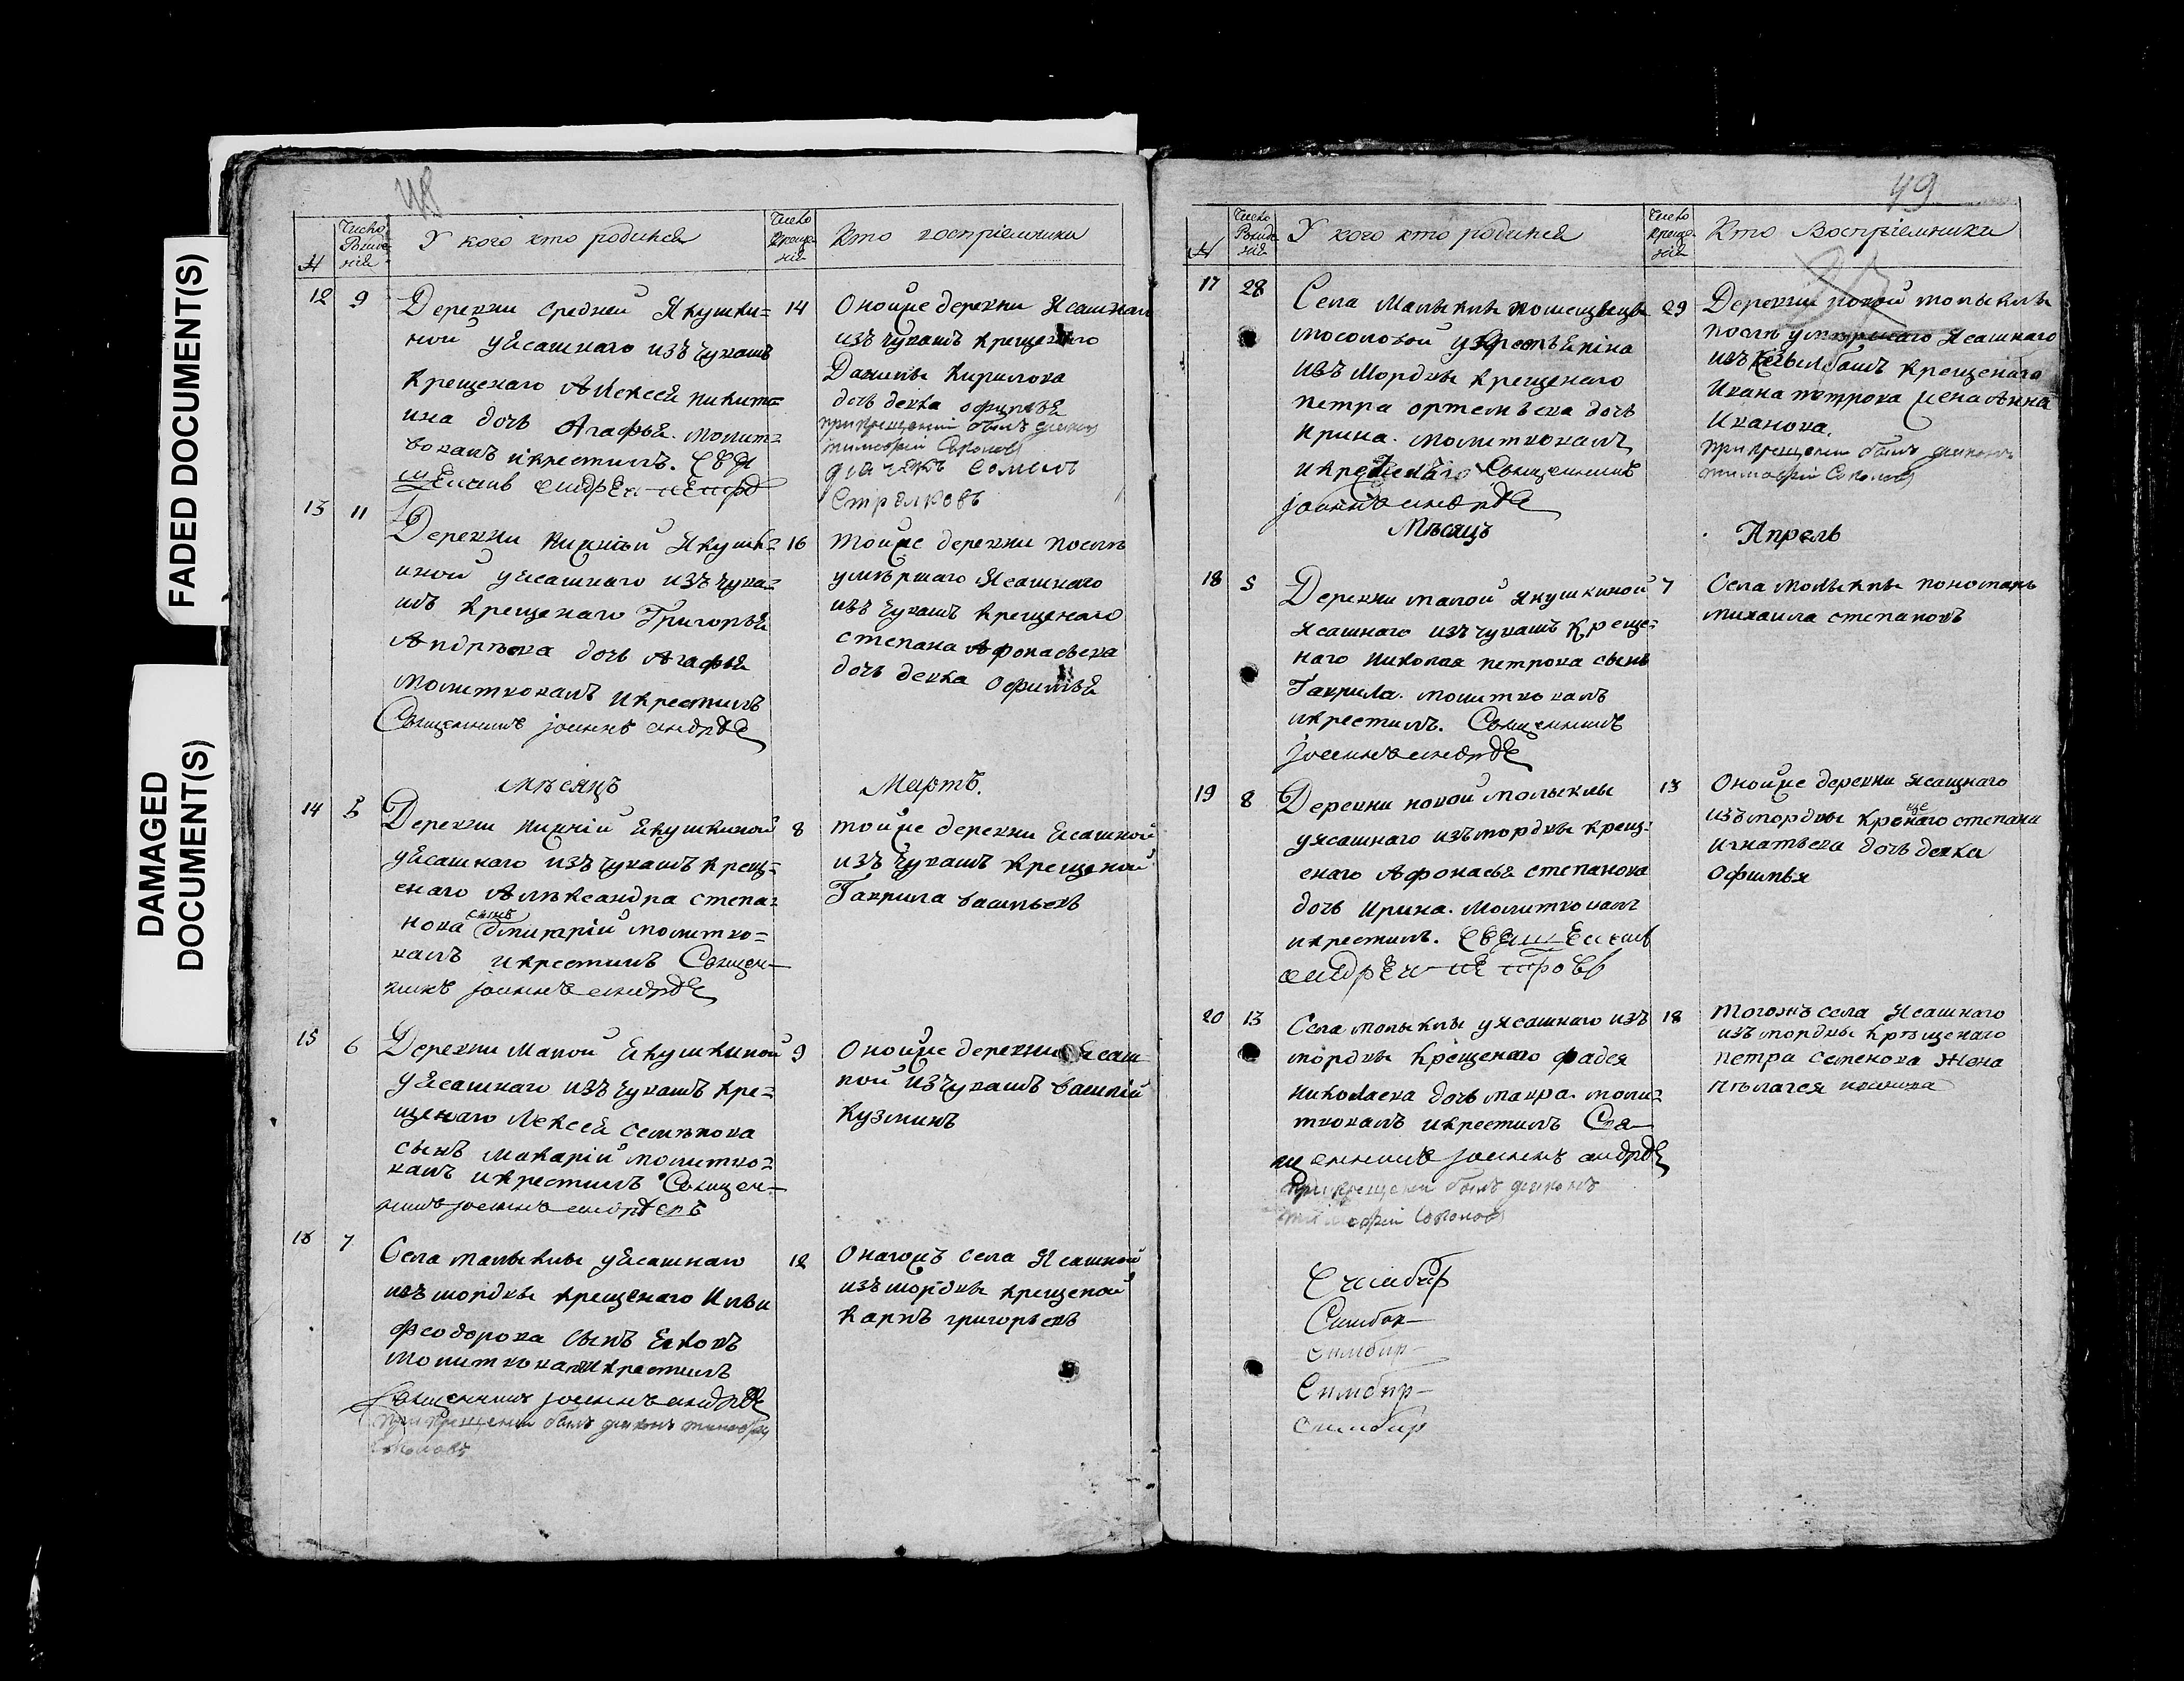 FADED DOCUMENT(S)
DAMAGED
DOCUMENT(S)
48
№
Число
Рожде-
нiя
У кого кто родился
Число
Креще-
нiя
Кто восприемники
12 9
Деревни средней Якушки=
ной уясашнаго изъ чувашъ
крещенаго Алексея никит=
ина дочь Агафья. молит=
вовалъ икрестилъ. Свя
щенникъ андрей петровъ
14
Оной же деревни Ясашнаго
изъ чувашъ крещенаго
Данилы Кирилова
дочь девка офимья
при крещении былъ диаконъ
тимофей Соколовъ
дiачекъ Семенъ
Стрелковъ
13 11
Деревни нижней Якушк=
иной уясашнаго изъ чува=
шъ крещенаго Григорья
Андреева дочь Агафья
молитвовалъ икрестилъ
Священникъ Iоаннъ андрее
16
той же деревни после
умершаго Ясашнаго
изъ чувашъ крещенаго
степана Афонасьева
дочь девка офимья
Месяцъ
Мартъ.
14 5
Деревни нижнiй Якушкиной
уясашнаго изъ чувашъ крещ=
енаго Александра степа=
нова сынъ дмитрiй молитво=
валъ икрестилъ Священ-
никъ Iоаннъ андрее
8
той же деревни Ясашной
изъ чувашъ крещеной
Гаврила васильевъ
15 6
Деревни малой Якушкиной
уясашнаго изъ чувашъ кре=
щенаго Алексея семенова
сынъ макарiй молитво=
валъ икрестилъ Священ-
никъ Iоаннъ андреевъ
9
Оной же деревни Ясаш
ной изчувашъ василiй
кузминъ
16 7
Села малыклы уясашнаго
изъ мордвы крещенаго Ильи
феодорова сынъ Яковъ
молитвовалъ икрестилъ
Священникъ Iоаннъ андрее
при крещении былъ диаконъ тимофей
Соколовъ
12
Онагожъ села Ясашной
изъ мордвы крещеной
карпъ григорьевъ
49
№
Число
Рожде
нiя
У кого кто родился
Число
Креще
нiя
Кто Восприемники
17 28
Села Малыклы помещицы
мосоловой укрестьянина
изъ мордвы крещенаго
петра ортемьева дочь
Ирина. молитвовалъ
икрестилъ Священникъ
Iоаннъ андрее
29
Деревни новой молыклы
после умершаго Ясашнаго
крещенаго
Ивана петрова жена Анна
Иванова.
при крещении былъ диаконъ
тимофей Соколовъ
Месяцъ
Апрель
18 5
Деревни малой якушкиной
ясашнаго изъ чувашъ креще=
наго николая петрова сынъ
Гаврила. молитвовалъ
икрестилъ. Священникъ
Iоаннъ андрее
7
Села молыклы пономарь
михаила степановъ
19 8
Деревни новой молыклы
уясашнаго изъ мордвы крещ=
енаго Афонасья степанова
дочь Ирина. молитвовалъ
икрестилъ. Священникъ
андрей петровъ
13
Оной же деревни Ясашнаго
изъ мордвы крещенаго степана
игнатьева дочь девка
офимья
20 13
Села молыклы уясашнаго изъ
мордвы крещенаго фадея
николаева дочь мавра. моли=
твовалъ икрестилъ Свя-
щенникъ Iоаннъ андрее
при крещении былъ диаконъ
тимофей Соколовъ
18
тогожъ села Ясашнаго
изъ мордвы крещенаго
петра семенова жена
пелагея иванова
Симбир
Симбир-
Симбир-
Симбир-
Симбир